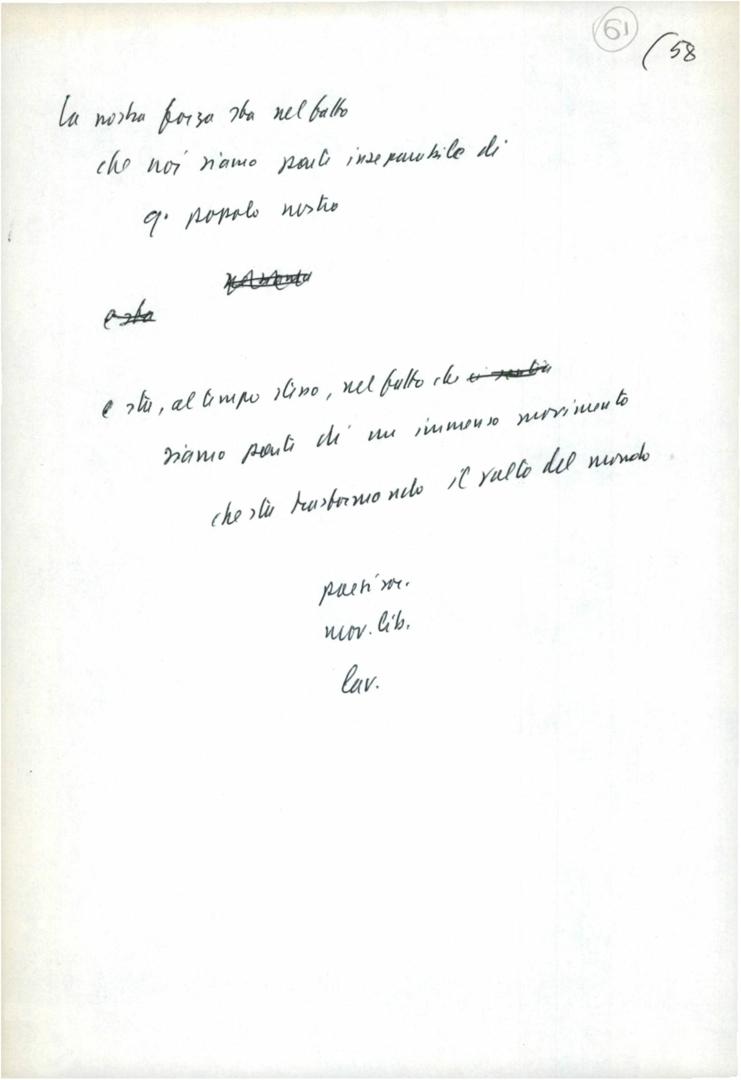 61
(58
La nostra forza sta nel fatto
che noi siamo parte inseparabile di
q. popolo nostro
e sta
e sta, al tempo stesso, nel fatto che
siamo parte di un immenso movimento
che sta trasformando il volto del mondo
paesi soc.
mov. lib.
lav.